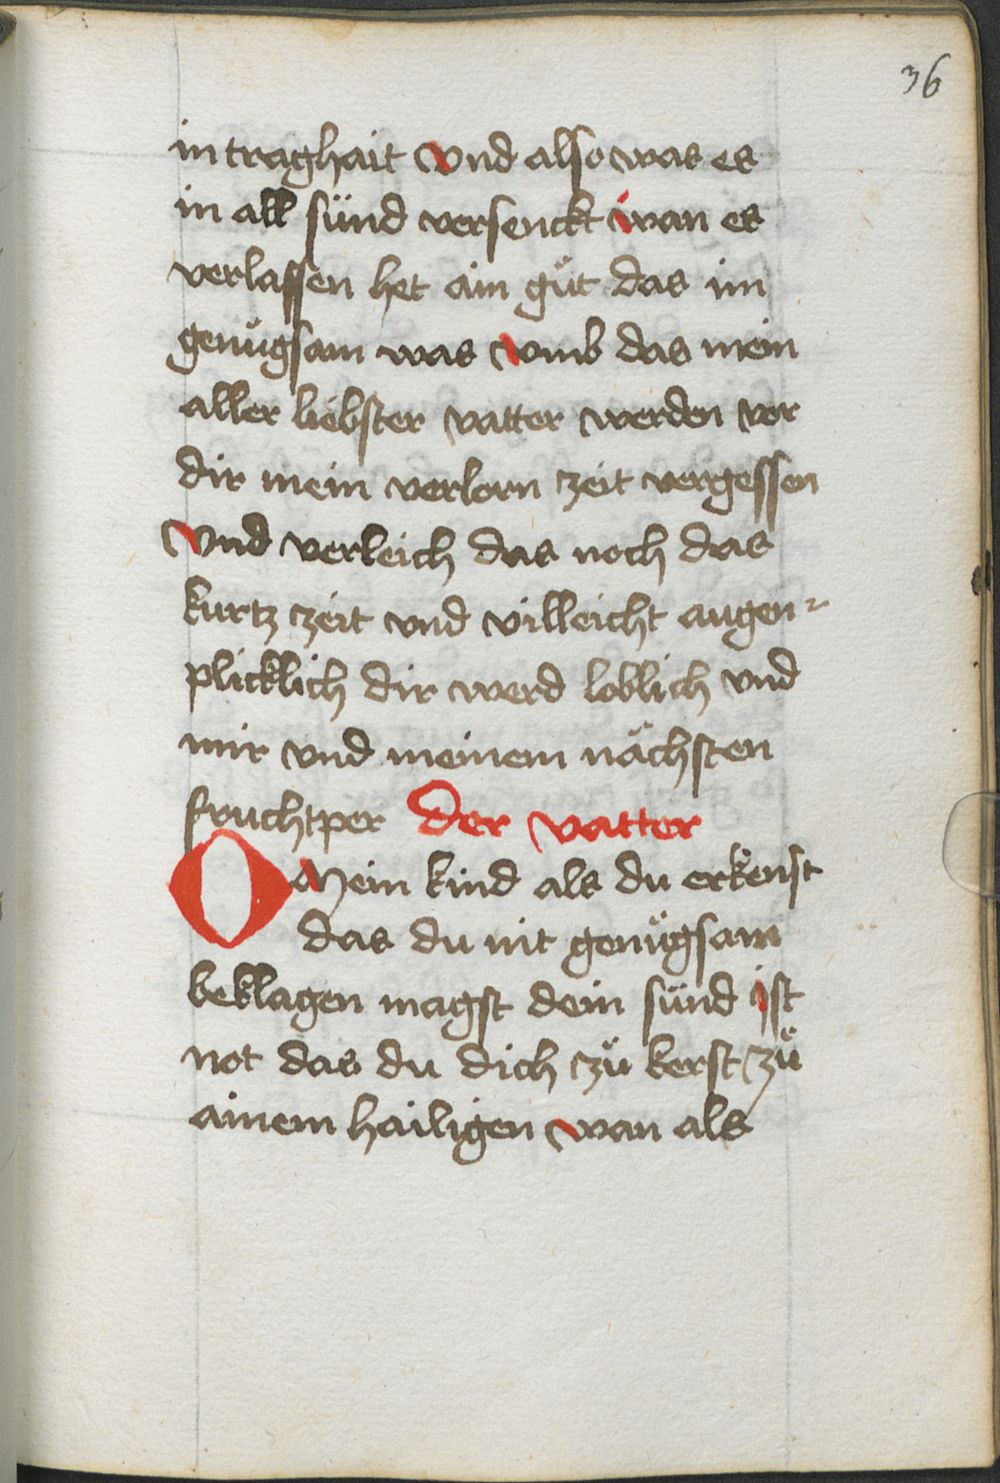 36
in traghait vnd also was es
in all sünd versenckt wan es
verlassen het ain gůt das im
genůgsam was vmb das mein
aller liebster vatter werden vor
dir mein verlorn zeit vergessen
vnd verleich das noch das
kurtz zeit vnd villeicht augen⸗
plicklich dir werd loblich vnd
mir vnd meinem nächsten
fruchtper der vatter
O Mein kind als du erkenst
das du nit genůgsam
beklagen magst dein sünd ist
not das du dich zů kerst zů
ainem hailigen wan als